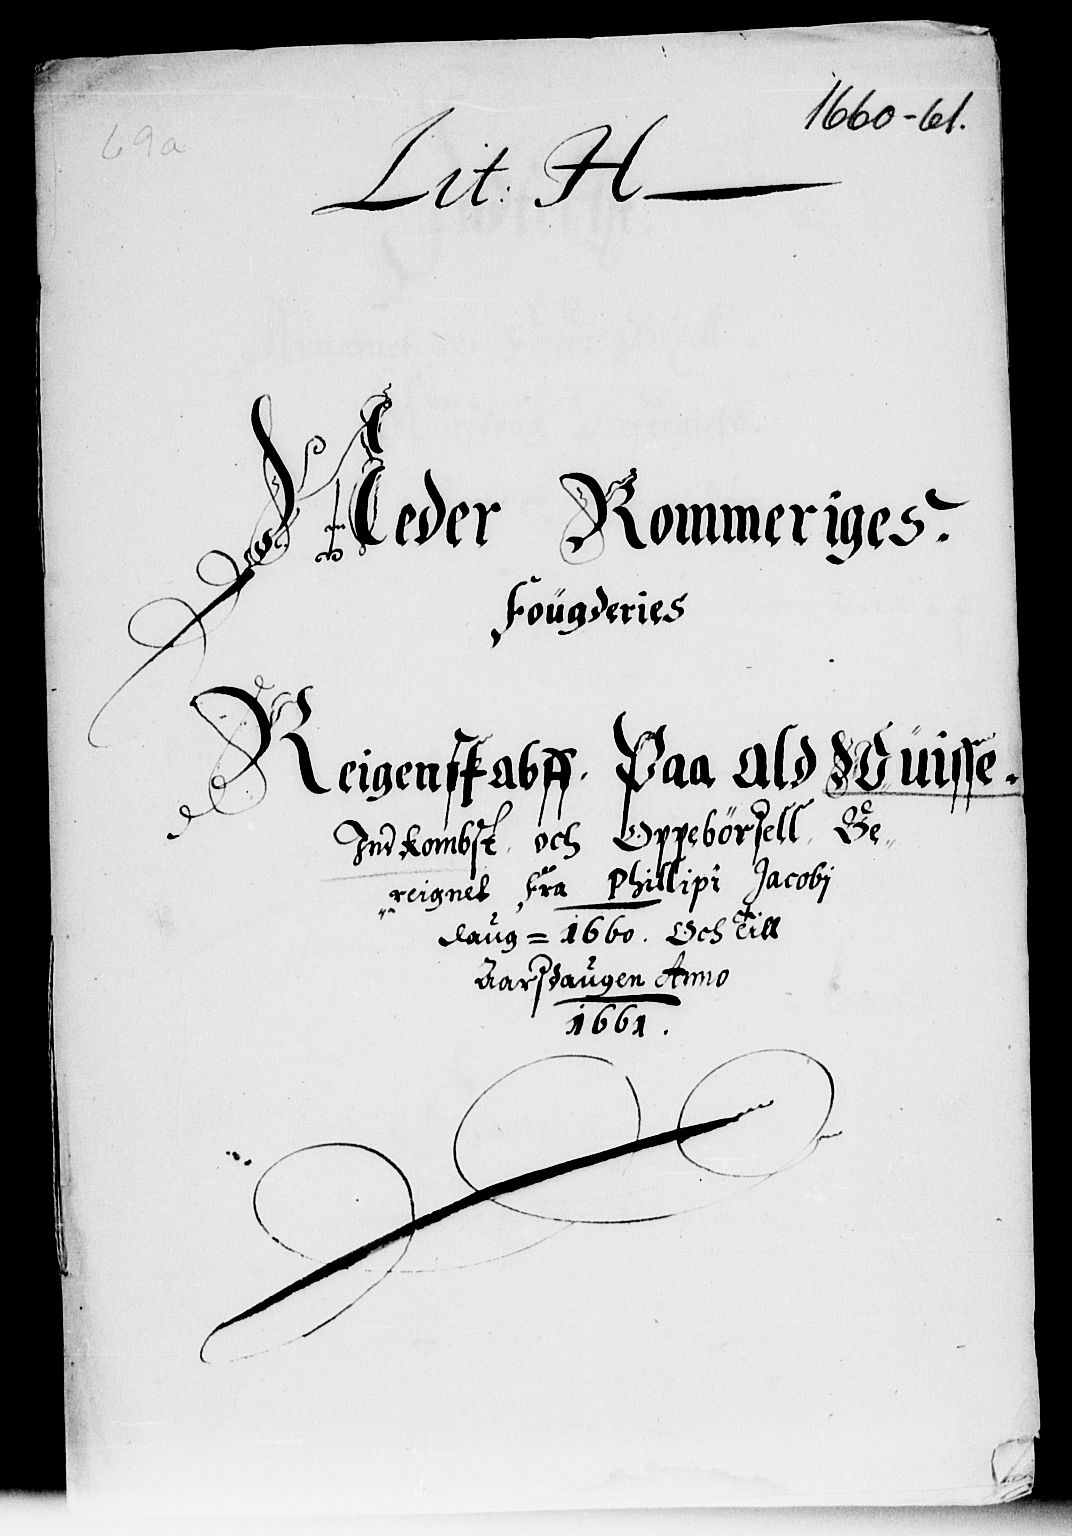 1660-61.
69a
Lit: H
Neder Rommeriges.
Foügderies
Reigenskabff. Paa ald Wüisse.
Indkombst. och Oppebörsell. Be„
„reignet Fra Phillipi Jacobj
daug = 1660. Och till
Aarsdaugen Anno
1661.